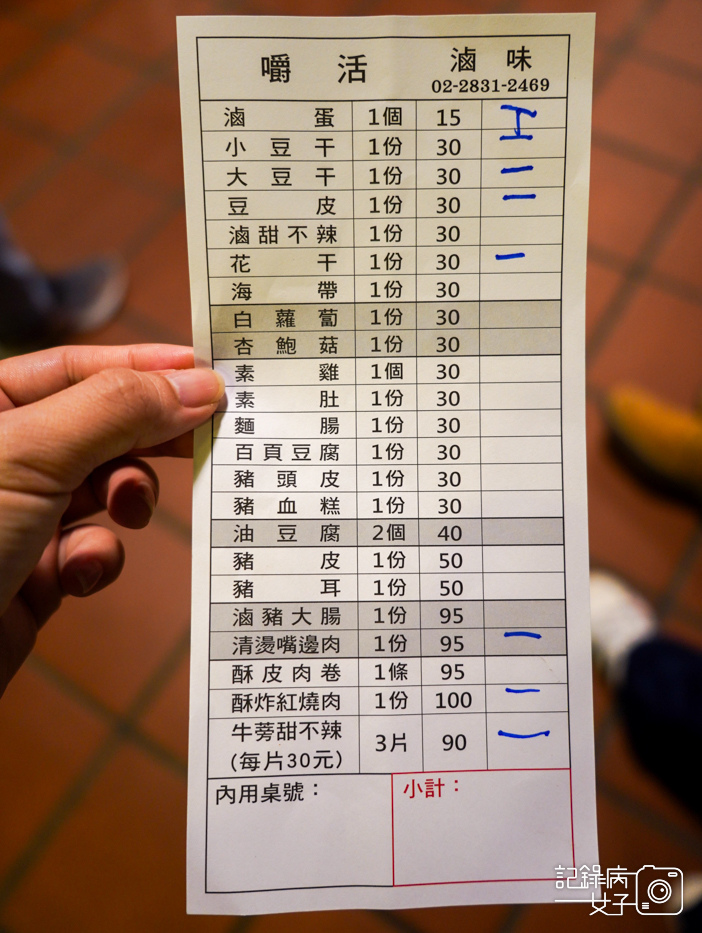 嚼活 滷味
02-2831-2469
滷蛋 1個 15
小豆干 1份 30 一
大豆干 1份 30 一
豆皮 1份 30 一
滷甜不辣 1份 30
花干 1份 30 一
海帶 1份 30
白蘿蔔 1份 30
杏鮑菇 1份 30
素雞 1個 30
素肚 1份 30
麵腸 1份 30
百頁豆腐 1份 30
豬頭皮 1份 30
豬血糕 1份 30
油豆腐 2個 40
豬皮 1份 50
豬耳 1份 50
滷豬大腸 1份 95
清燙嘴邊肉 1份 95 一
酥皮肉卷 1條 95
酥炸紅燒肉 1份 100 一
牛蒡甜不辣
(每片30元) 3片 90 一
內用桌號： 小計：
記錄病
女子